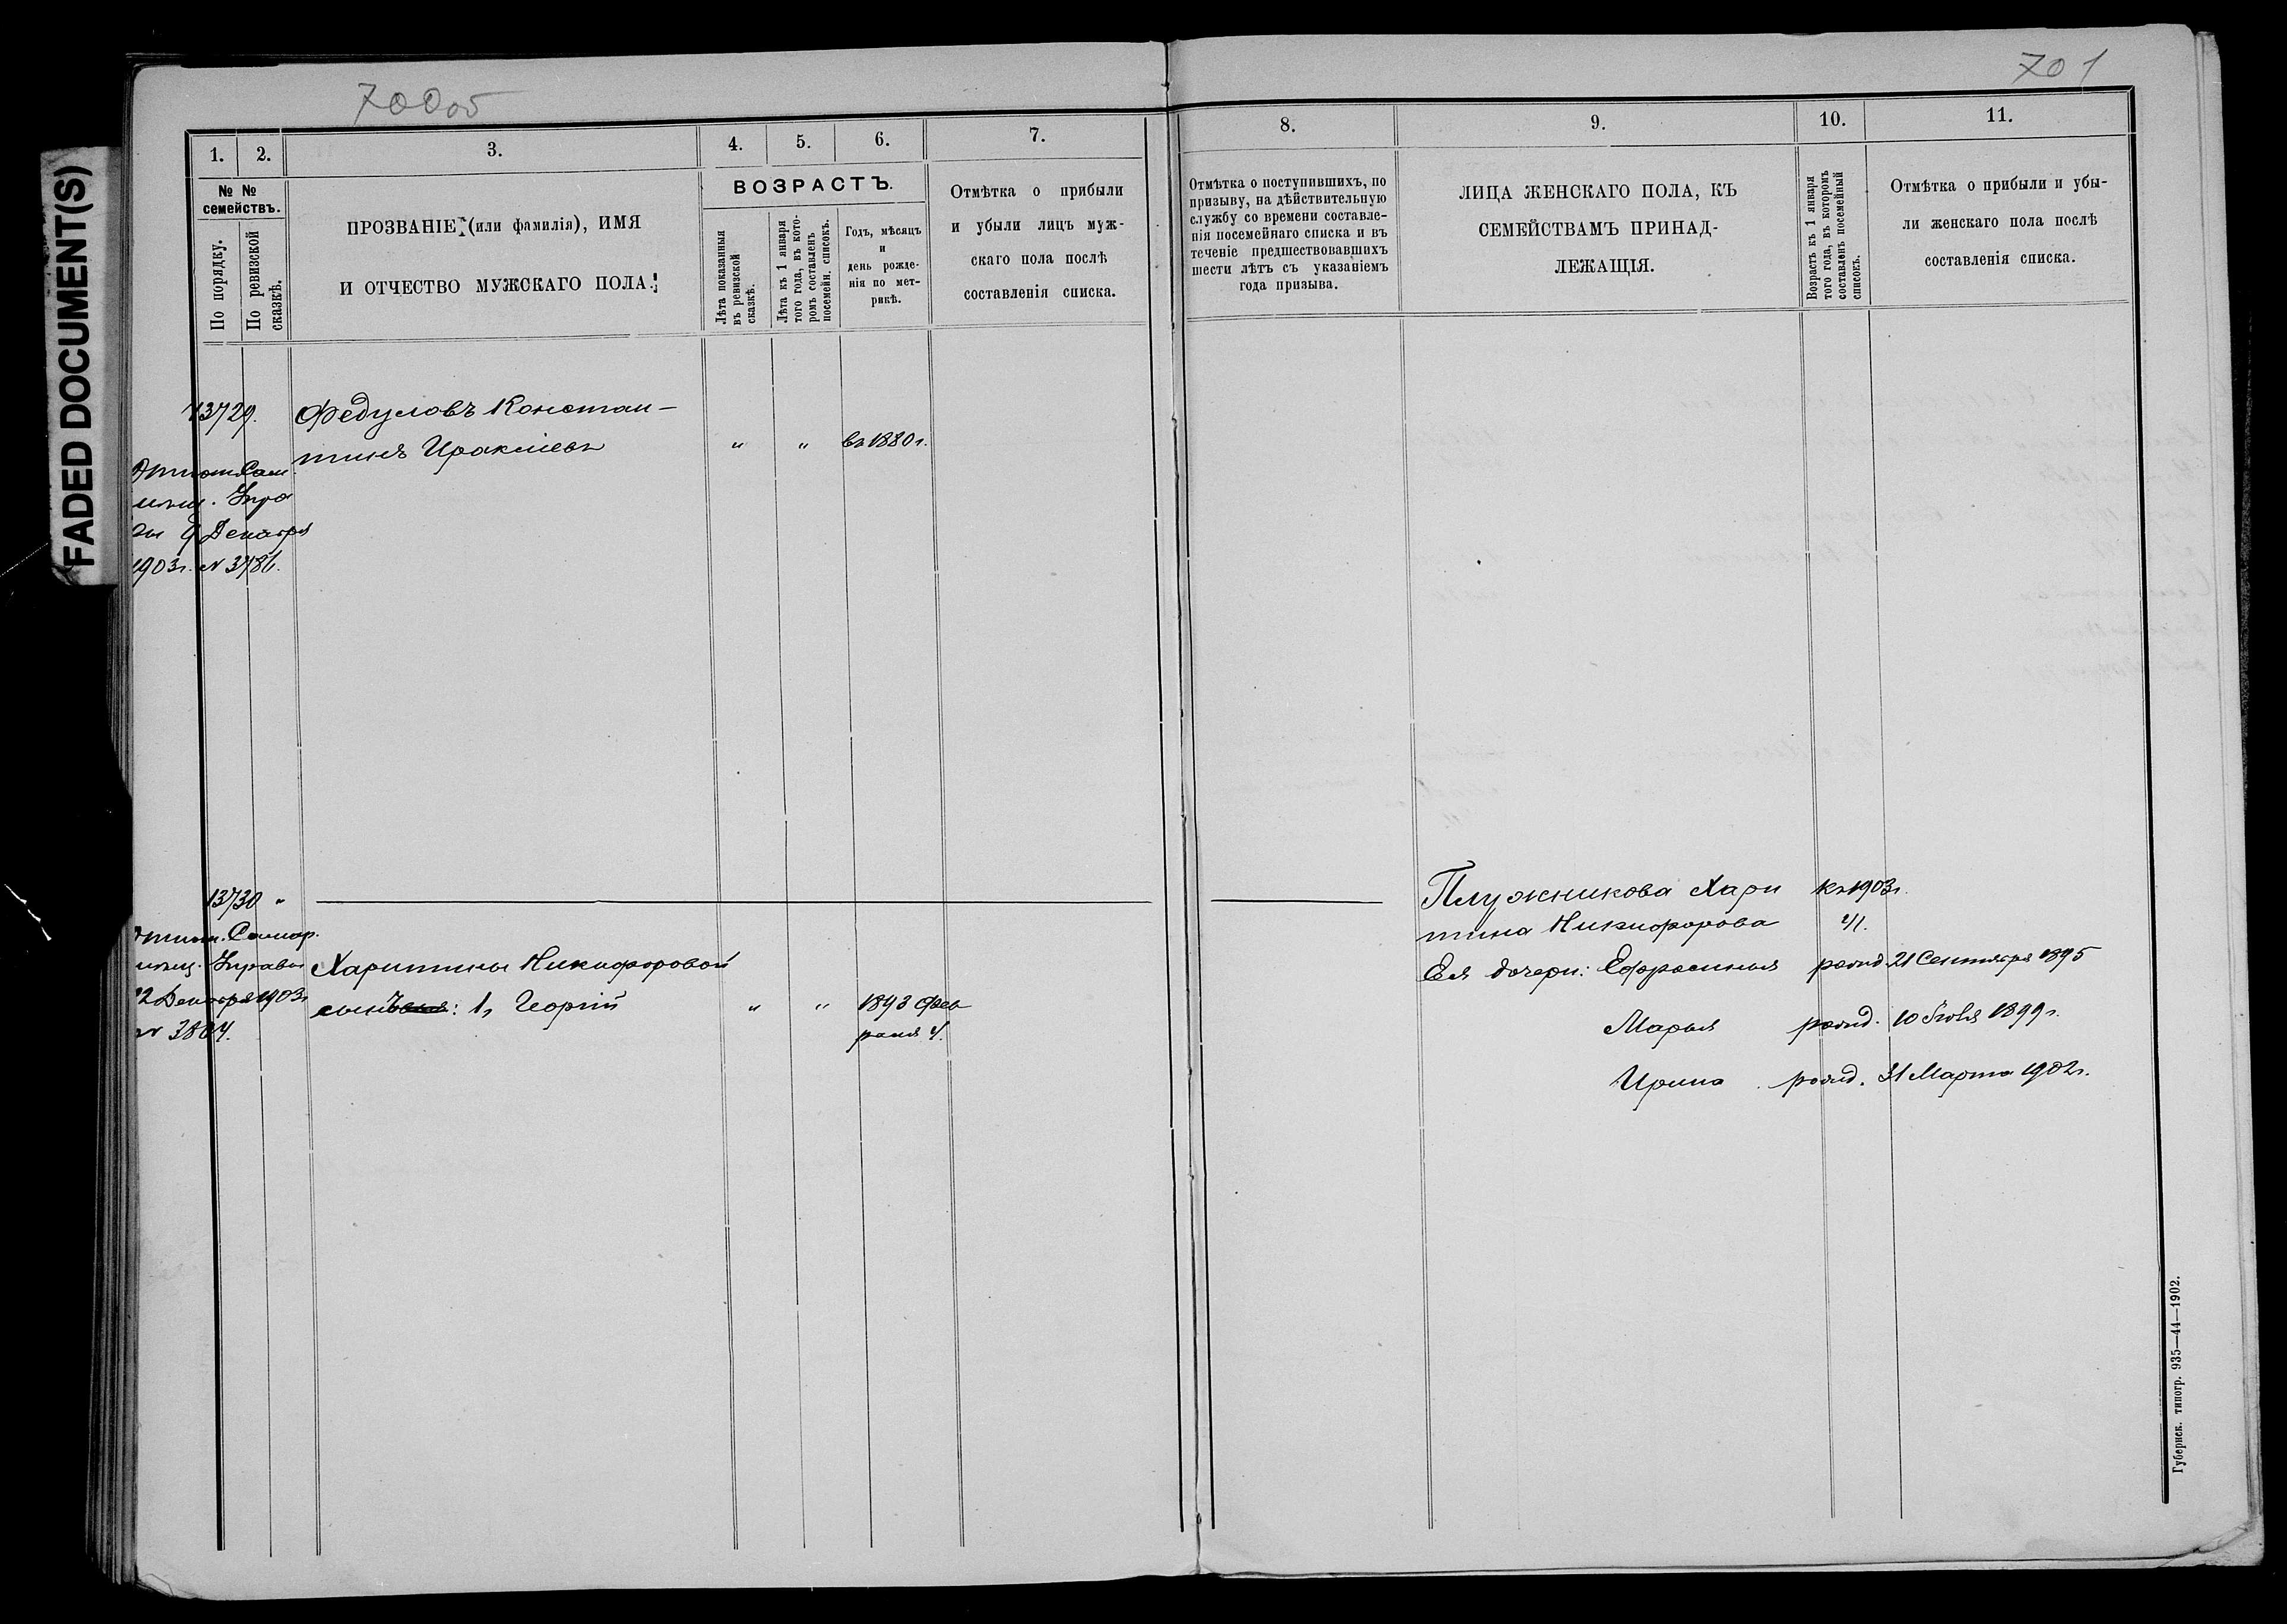 FADED DOCUMENT(S)
700об
1.
2.
3.
4.
5.
6.
7.
№ №
семействъ.
По порядку.
По ревизской
сказкѣ.
ПРОЗВАНІЕ (или фамилія), ИМЯ
И ОТЧЕСТВО МУЖСКАГО ПОЛА.
ВОЗРАСТЪ.
Лѣта показанныя
въ ревизской
сказкѣ.
Лѣта къ 1 января
того года, въ кото-
ромъ составленъ
посемейн. списокъ.
Годъ, мѣсяцъ
и
день рожде-
нія по мет-
рикѣ.
Отмѣтка о прибыли
и убыли лицъ муж-
скаго пола послѣ
составленія списка.
13729.
Федуловъ Констан-
тинъ Ираклiевъ
"
"
въ 1880 г.
Упра
вы 9 Декабря
1903 г. №
13730 "
Самар.
мѣщ. Управы
12 Декабря 1903 г
№ 3804.
Харитины Никифоровой
сынъ: 1, Георгій
"
"
1893 Фев
раля 4.
701
8.
9.
10.
11.
Отмѣтка о поступившихъ, по
призыву, на дѣйствительную
службу со времени составле-
нія посемейнаго списка и въ
теченіе предшествовавшихъ
шести лѣтъ съ указаніемъ
года призыва.
ЛИЦА ЖЕНСКАГО ПОЛА, КЪ
СЕМЕЙСТВАМЪ ПРИНАД-
ЛЕЖАЩІЯ.
Возрастъ къ 1 января
того года, въ которомъ
составленъ посемейный
списокъ.
Отмѣтка о прибыли и убы-
ли женскаго пола послѣ
составленія списка.
Плужникова Хари
тина Никифорова
къ 1903 г.
41.
Ея дочери: Ефросинья рожд. 21 Сентября 1895
Марья рожд. 10 Іюля 1899 г.
Ирина рожд. 31 Марта 1902 г.
Губернск. типогр. 935—44—1902.